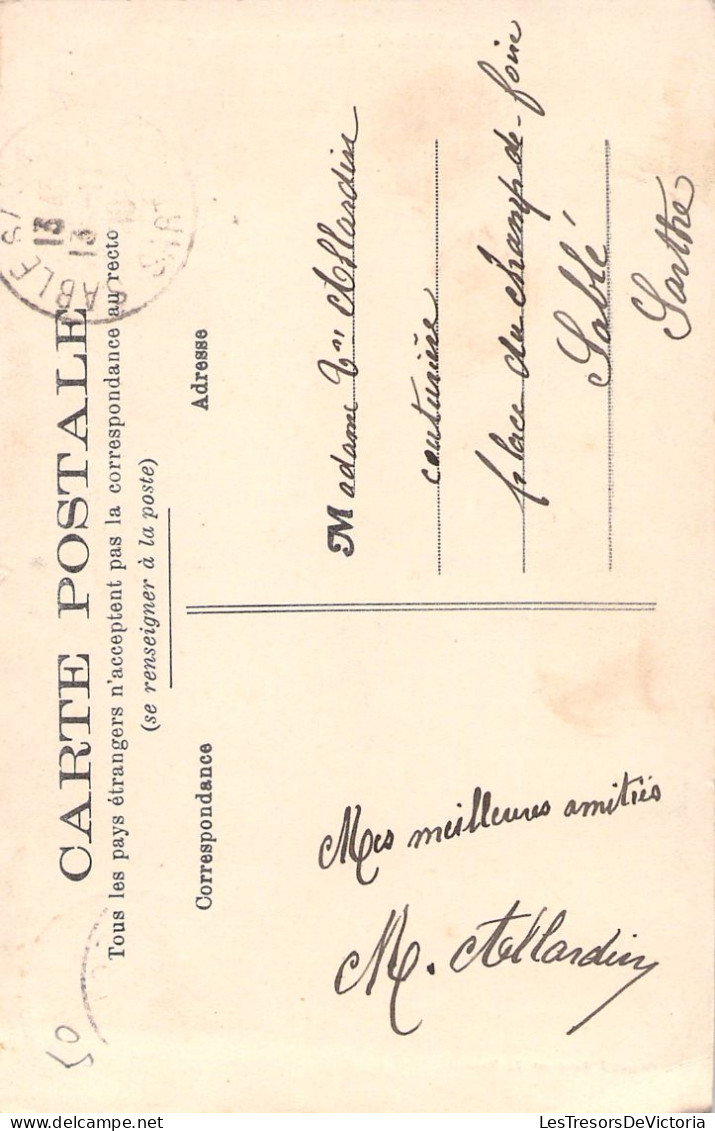 CARTE POSTALE
Tous les pays étrangers n'acceptent pas la correspondance au recto
(se renseigner à la poste)
Correspondance
Adresse
Mes meilleures amitiés
M. Allardin
Madame Allardin
couturière
place du champ-de-foire
Sablé
Sarthe
SABLE S
13
13
50
LesTresorsDeVictoria